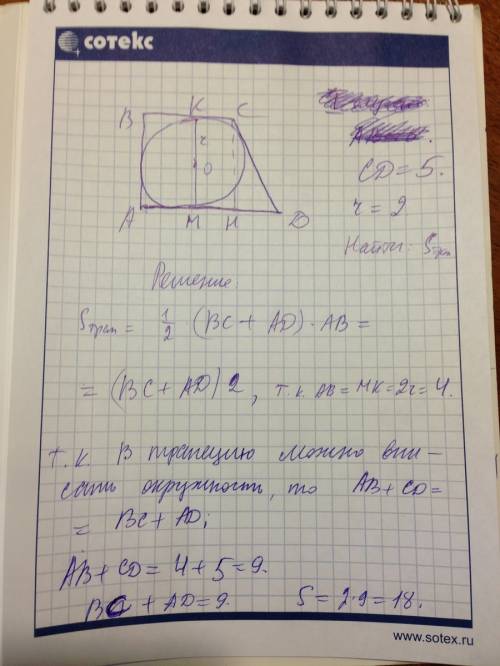 сотекс
K
B C
r
O
A M H D
CD = 5.
r = 2
Найти: Sтрап
Решение:
Sтрап = 1/2 (BC + AD) · AB =
= (BC + AD) 2, т.к. AB = MK = 2r = 4.
т.к. В трапецию можно впи-
сать окружность, то AB + CD =
= BC + AD;
AB + CD = 4 + 5 = 9.
BC + AD = 9. S = 2·9 = 18.
www.sotex.ru